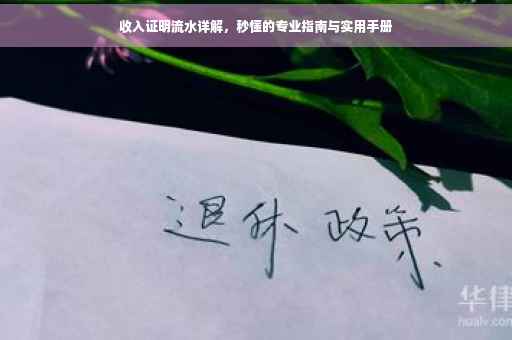 收入证明流水详解，秒懂的专业指南与实用手册
退休 政策
华律
hualv.com